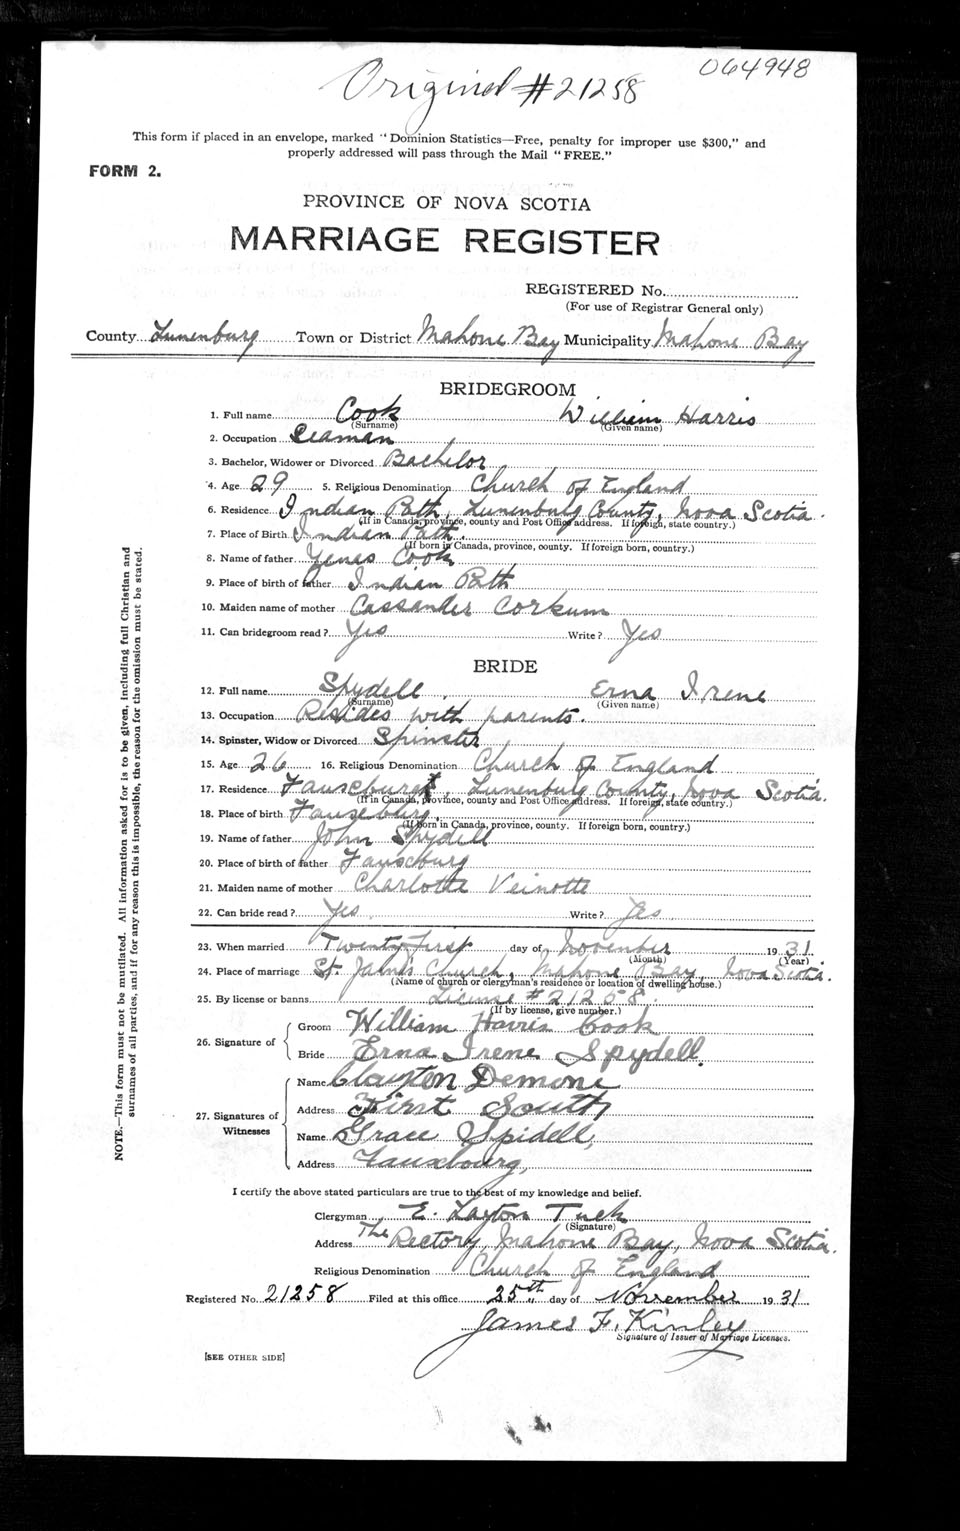 064948
Original #21258
This form if placed in an envelope, marked "Dominion Statistics—Free, penalty for improper use $300," and
properly addressed will pass through the Mail "FREE."
FORM 2.
PROVINCE OF NOVA SCOTIA
MARRIAGE REGISTER
REGISTERED No.
(For use of Registrar General only)
County Lunenburg Town or District Mahone Bay Municipality Mahone Bay
BRIDEGROOM
1. Full name Cook William Harris
(Surname) (Given name)
2. Occupation Seaman
3. Bachelor, Widower or Divorced Bachelor
4. Age 29 5. Religious Denomination Church of England
6. Residence Indian Path, Lunenburg County, Nova Scotia.
(If in Canada, province, county and Post Office address. If foreign, state country.)
7. Place of Birth Indian Path.
(If born in Canada, province, county. If foreign born, country.)
8. Name of father Yenas Cook
9. Place of birth of father Indian Path
10. Maiden name of mother Cassander Corkum
11. Can bridegroom read? Yes Write? Yes
BRIDE
12. Full name Spydell. Erna Irene
(Surname) (Given name)
13. Occupation Resides with parents.
14. Spinster, Widow or Divorced Spinster
15. Age 26 16. Religious Denomination Church of England
17. Residence Fauxburg, Lunenburg County, Nova Scotia.
(If in Canada, province, county and Post Office address. If foreign, state country.)
18. Place of birth Fauxburg.
(If born in Canada, province, county. If foreign born, country.)
19. Name of father John Spydell
20. Place of birth of father Fauxburg
21. Maiden name of mother Charlotte Veinotte
22. Can bride read? Yes Write? Yes
23. When married Twenty First day of November 1931
(Month) (Year)
24. Place of marriage St. James Church, Mahone Bay, Nova Scotia.
(Name of church or clergyman's residence or location of dwelling house.)
25. By license or banns License #21258.
(If by license, give number.)
26. Signature of
Groom William Harris Cook
Bride Erna Irene Spydell.
27. Signatures of Witnesses
Name Clayton Demone
Address First South
Name Grace Spidell,
Address Fauxbourg,
I certify the above stated particulars are true to the best of my knowledge and belief.
Clergyman E. Layton Tuck
(Signature)
Address The Rectory, Mahone Bay, Nova Scotia.
Religious Denomination Church of England
Registered No. 21258 Filed at this office 25th day of November 1931
James F. Kinley
Signature of Issuer of Marriage Licenses.
[SEE OTHER SIDE]
NOTE.—This form must not be mutilated. All information asked for is to be given, including full Christian and
surnames of all parties, and if for any reason this is impossible, the reason for the omission must be stated.